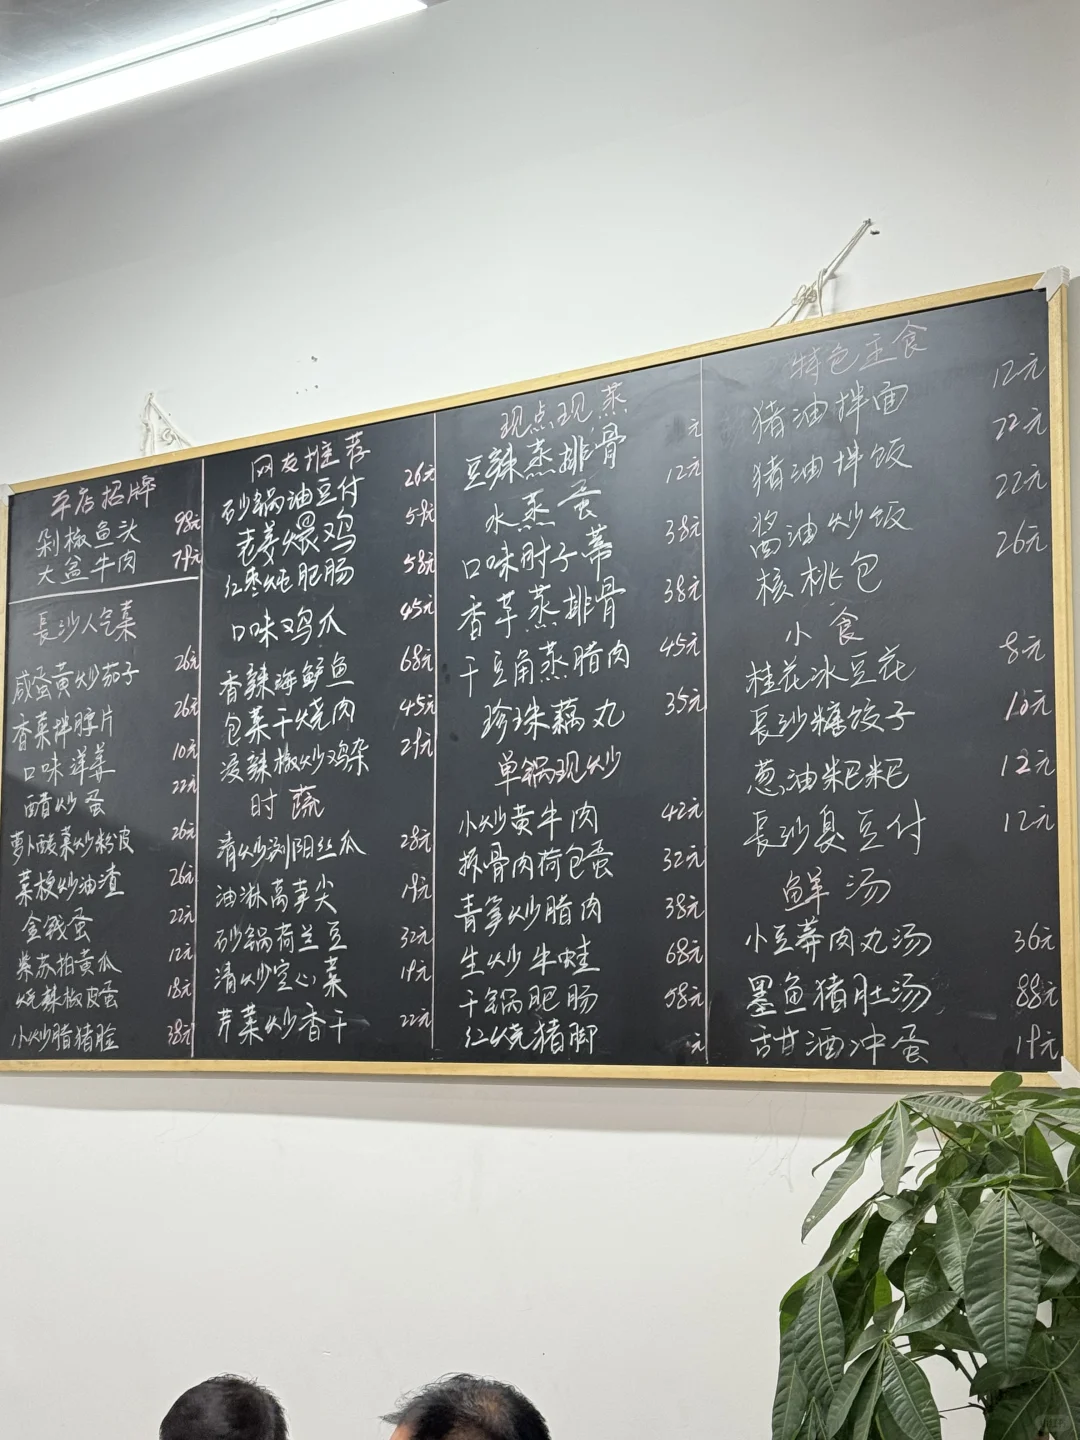 本店招牌
剁椒鱼头 98元
大盆牛肉 79元
長沙人气菜
咸蛋黄炒茄子 26元
香菜拌脖片 26元
口味洋姜 10元
醋炒蛋 22元
萝卜酸菜炒粉皮 26元
菜梗炒油渣 26元
金钱蛋 22元
紫苏拍黄瓜 12元
烧辣椒皮蛋 18元
小炒腊猪脸 38元
网友推荐
砂锅油豆付 26元
老姜煨鸡 59元
红枣炖肥肠 58元
口味鸡爪 45元
香辣海鲈鱼 68元
包菜干烧肉 45元
浸辣椒炒鸡杂 29元
时蔬
清炒浏阳丝瓜 28元
油淋莴笋尖 19元
砂锅荷兰豆 32元
清炒空心菜 19元
芹菜炒香干 22元
现点现蒸
豆辣蒸排骨 元
水蒸蛋 12元
口味肘子蒂 38元
香芋蒸排骨 38元
干豆角蒸腊肉 45元
珍珠藕丸 35元
单锅现炒
小炒黄牛肉 42元
拆骨肉荷包蛋 32元
青笋炒腊肉 38元
生炒牛蛙 68元
干锅肥肠 58元
红烧猪脚 元
特色主食
猪油拌面 12元
猪油拌饭 22元
酱油炒饭 22元
核桃包 26元
小食
桂花冰豆花 8元
長沙糖饺子 10元
葱油粑粑 12元
長沙臭豆付 12元
鲜汤
小豆荞肉丸汤 36元
墨鱼猪肚汤 88元
甜酒冲蛋 19元